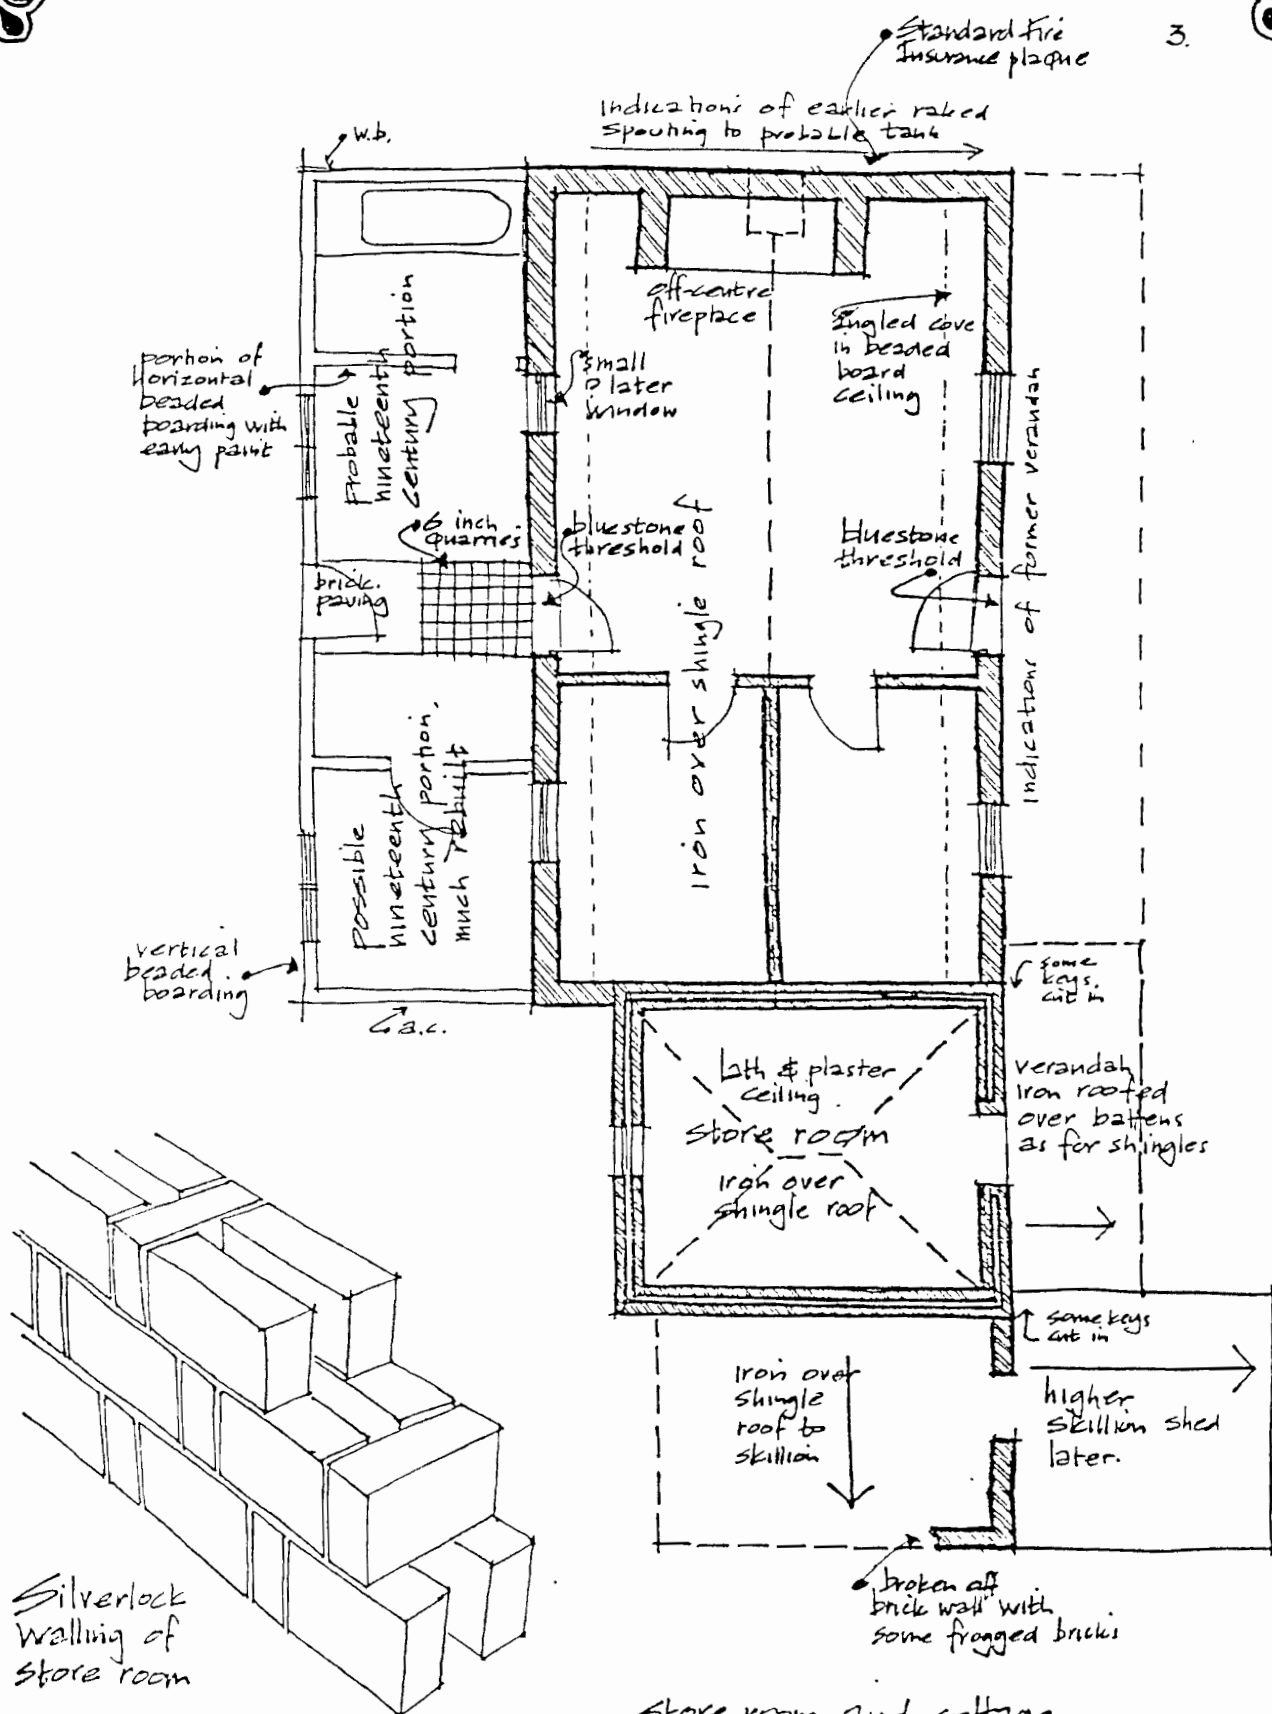 3.
Standard Fire
Insurance plaque
Indications of earlier raked
spouting to probable tank
w.b.
off-centre
fireplace
angled cove
in beaded
board
ceiling
small
later
window
portion of
horizontal
beaded
boarding with
early paint
Probable
nineteenth
century portion
6 inch
quarries
bluestone
threshold
bluestone
threshold
brick
paving
iron over shingle roof
Indications of former verandah
Possible
nineteenth
century portion,
much rebuilt
vertical
beaded
boarding
a.c.
some
keys
cut in
lath & plaster
ceiling
store room
iron over
shingle roof
verandah
iron roofed
over battens
as for shingles
some keys
cut in
iron over
shingle
roof to
skillion
higher
skillion shed
later.
broken off
brick wall with
some frogged bricks
Silverlock
walling of
store room
store room and cottage